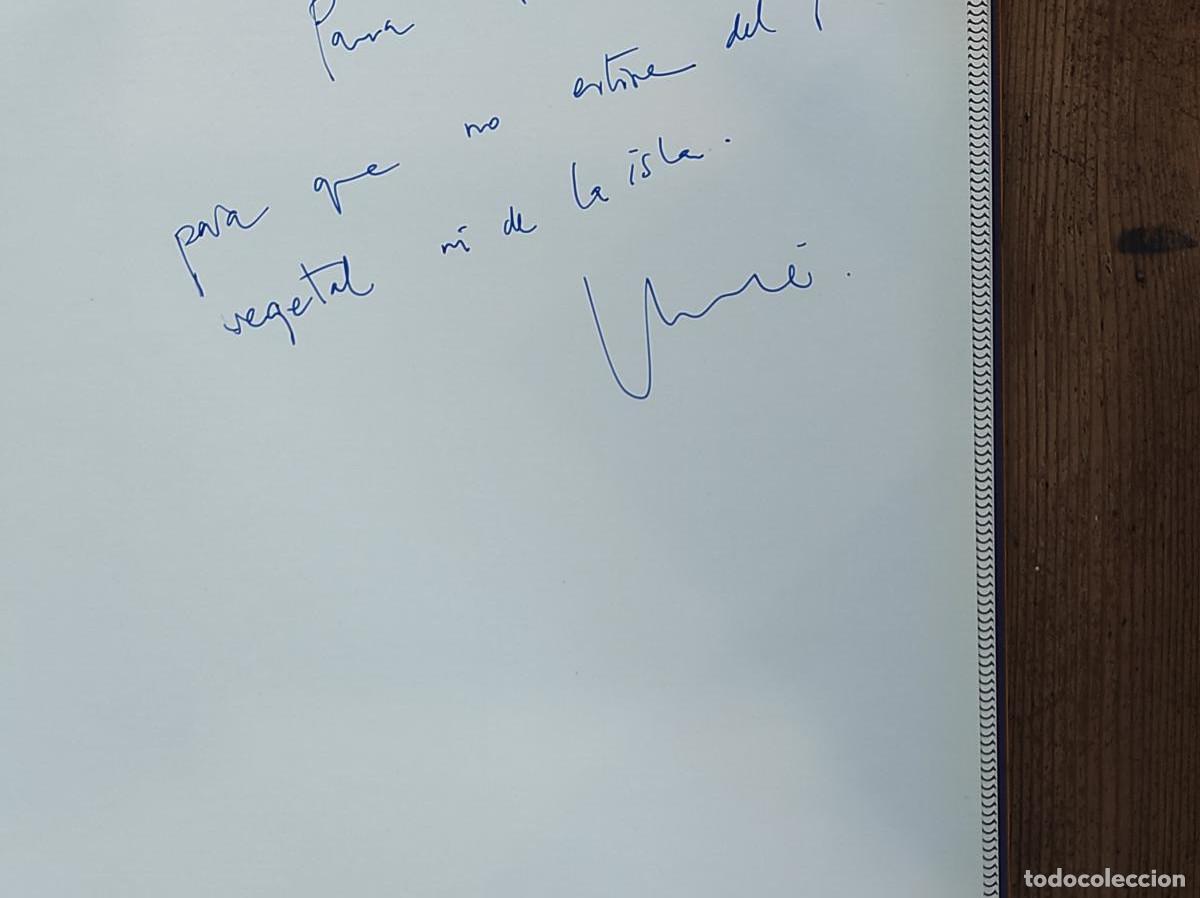 Para
para que no del
vegetal ni de la isla.
todocoleccion